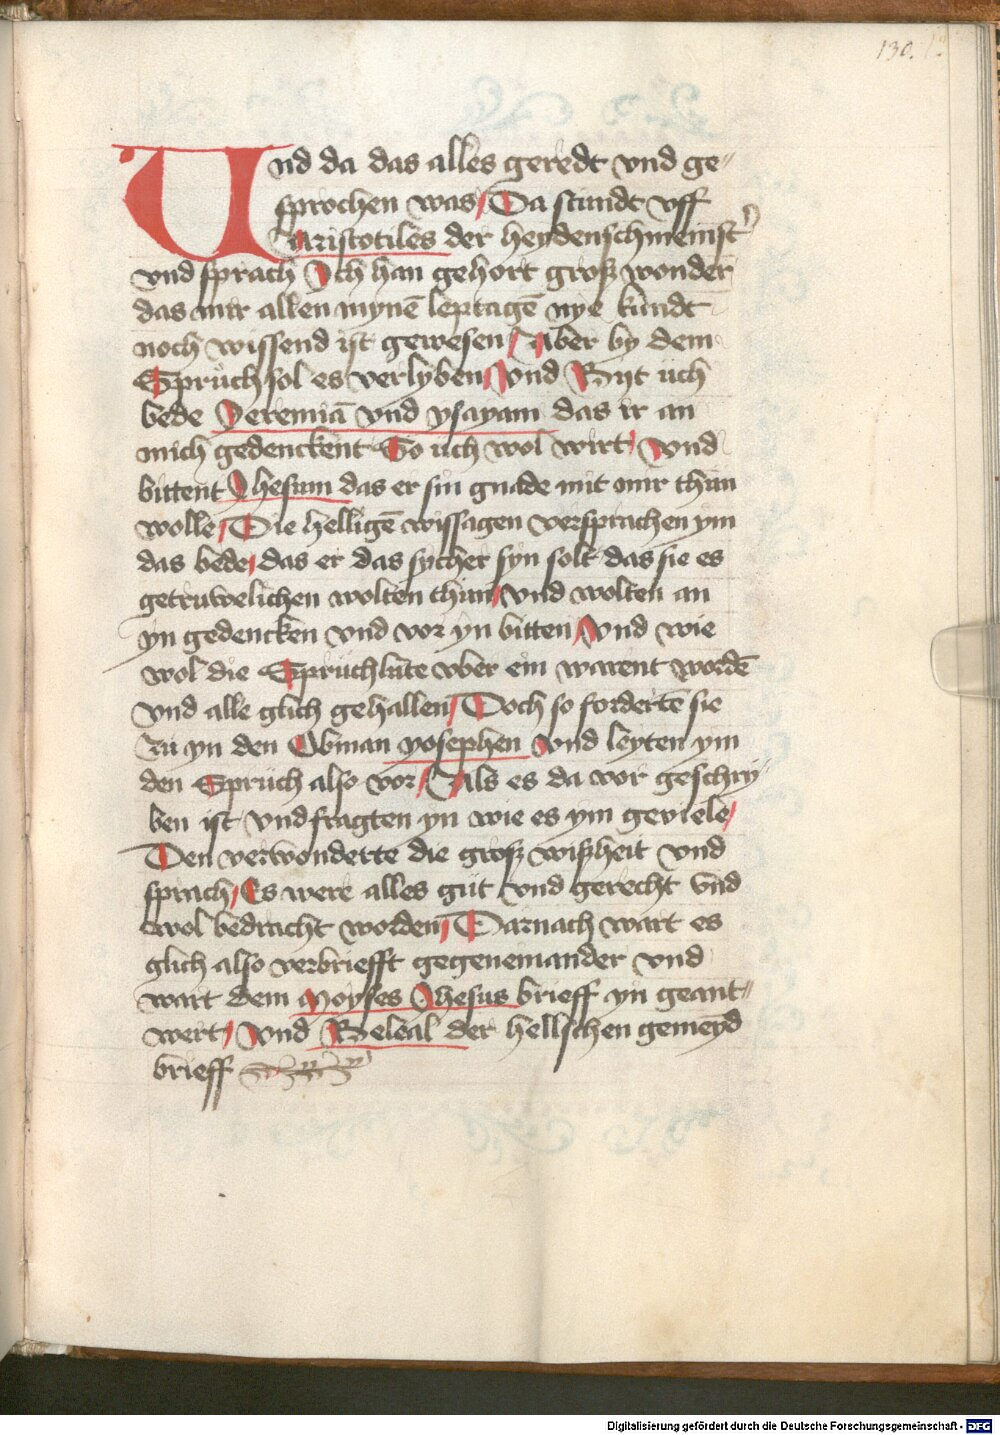 130.
Und da das alles geredt vnd ge〃
sprochen was / Da stundt vff
Aristotiles der heydenschmeinst
vnd sprach Ich han gehort groß wonder
das mir allen mynē leptagē nye kundt
noch wissend ist gewesen / Aber by dem
Spruͦch sol es verlyben / Vnd Bijt uch
bede Jeremiā vnd ysayam das ir an
mich gedenckent So uch wol wirt / Vnd
bittent Jhesum das er sin gnade mit mir thun
wolle / Die helligē wissagen versprachen ym
das bede / das er das sycher syn solt das sie es
getruwelichen wolten thun / vnd wolten an
yn gedencken vnd vor yn bitten / Vnd wie
wol die Spruchlute vber ein warent wordē
vnd alle glich gehallen / Doch so fordertē sie
zu yn den Obman yosephen Vnd leyten ym
den Spruch also vor / Als es da vor geschry
ben ist vnd fragten yn wie es ym geviele /
Den verwonderte die groß wißheit vnd
sprach / Es were alles gut vnd gerecht vnd
wol bedracht worden / Darnach wart es
glich also verbriefft gegeneinander vnd
wart dem Moyses Jhesus brieff yn geant〃
wert / Vnd Beleal der hellschen gemeyd
brieff
Digitalisierung gefördert durch die Deutsche Forschungsgemeinschaft - DFG